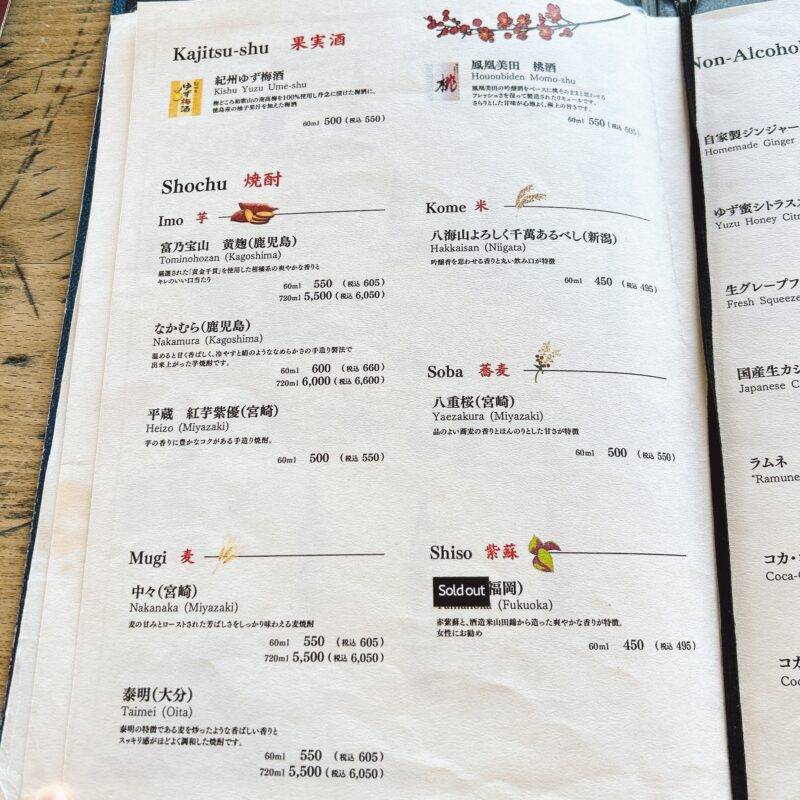 Kajitsu-shu 果実酒
紀州ゆず梅酒
Kishu Yuzu Ume-shu
梅どころ和歌山の南高梅を100%使用し丹念に漬けた梅酒に、
徳島産の柚子果汁を加えた梅酒
60ml 500 (税込 550)
ゆず梅酒
鳳凰美田 桃酒
Hououbiden Momo-shu
鳳凰美田の吟醸酒をベースに桃そのままと思わせる
フレッシュさを保って製造されたリキュールです。
さらりとした甘味が心地よく、極上の旨さです。
60ml 550 (税込 605)
桃
Shochu 焼酎
Imo 芋
富乃宝山 黄麹(鹿児島)
Tominohozan (Kagoshima)
厳選された「黄金千貫」を使用した柑橘系の爽やかな香りと
キレのいい口当たり
60ml 550 (税込 605)
720ml 5,500 (税込 6,050)
なかむら(鹿児島)
Nakamura (Kagoshima)
温めると甘く香ばしく、冷やすと絹のようななめらかさの手造り製法で
出来上がった芋焼酎です。
60ml 600 (税込 660)
720ml 6,000 (税込 6,600)
平蔵 紅芋紫優(宮崎)
Heizo (Miyazaki)
芋の香りに豊かなコクがある手造り焼酎。
60ml 500 (税込 550)
Mugi 麦
中々(宮崎)
Nakanaka (Miyazaki)
麦の甘みとローストされた芳ばしさをしっかり味わえる麦焼酎
60ml 550 (税込 605)
720ml 5,500 (税込 6,050)
泰明(大分)
Taimei (Oita)
泰明の特徴である麦を炒ったような香ばしい香りと
スッキリ感がほどよく調和した焼酎です。
60ml 550 (税込 605)
720ml 5,500 (税込 6,050)
Kome 米
八海山よろしく千萬あるべし(新潟)
Hakkaisan (Niigata)
吟醸香を思わせる香りと丸い飲み口が特徴
60ml 450 (税込 495)
Soba 蕎麦
八重桜(宮崎)
Yaezakura (Miyazaki)
品のよい蕎麦の香りとほんのりとした甘さが特徴
60ml 500 (税込 550)
Shiso 紫蘇
Sold out
福岡)
(Fukuoka)
赤紫蘇と、酒造米山田錦から造った爽やかな香りが特徴。
女性にお勧め
60ml 450 (税込 495)
Non-Alcoho
自家製ジンジャー
Homemade Ginger
ゆず蜜シトラス
Yuzu Honey Citr
生グレープフ
Fresh Squeeze
国産生カシ
Japanese C
ラムネ
"Ramune
コカ・
Coca-
コカ
Coc